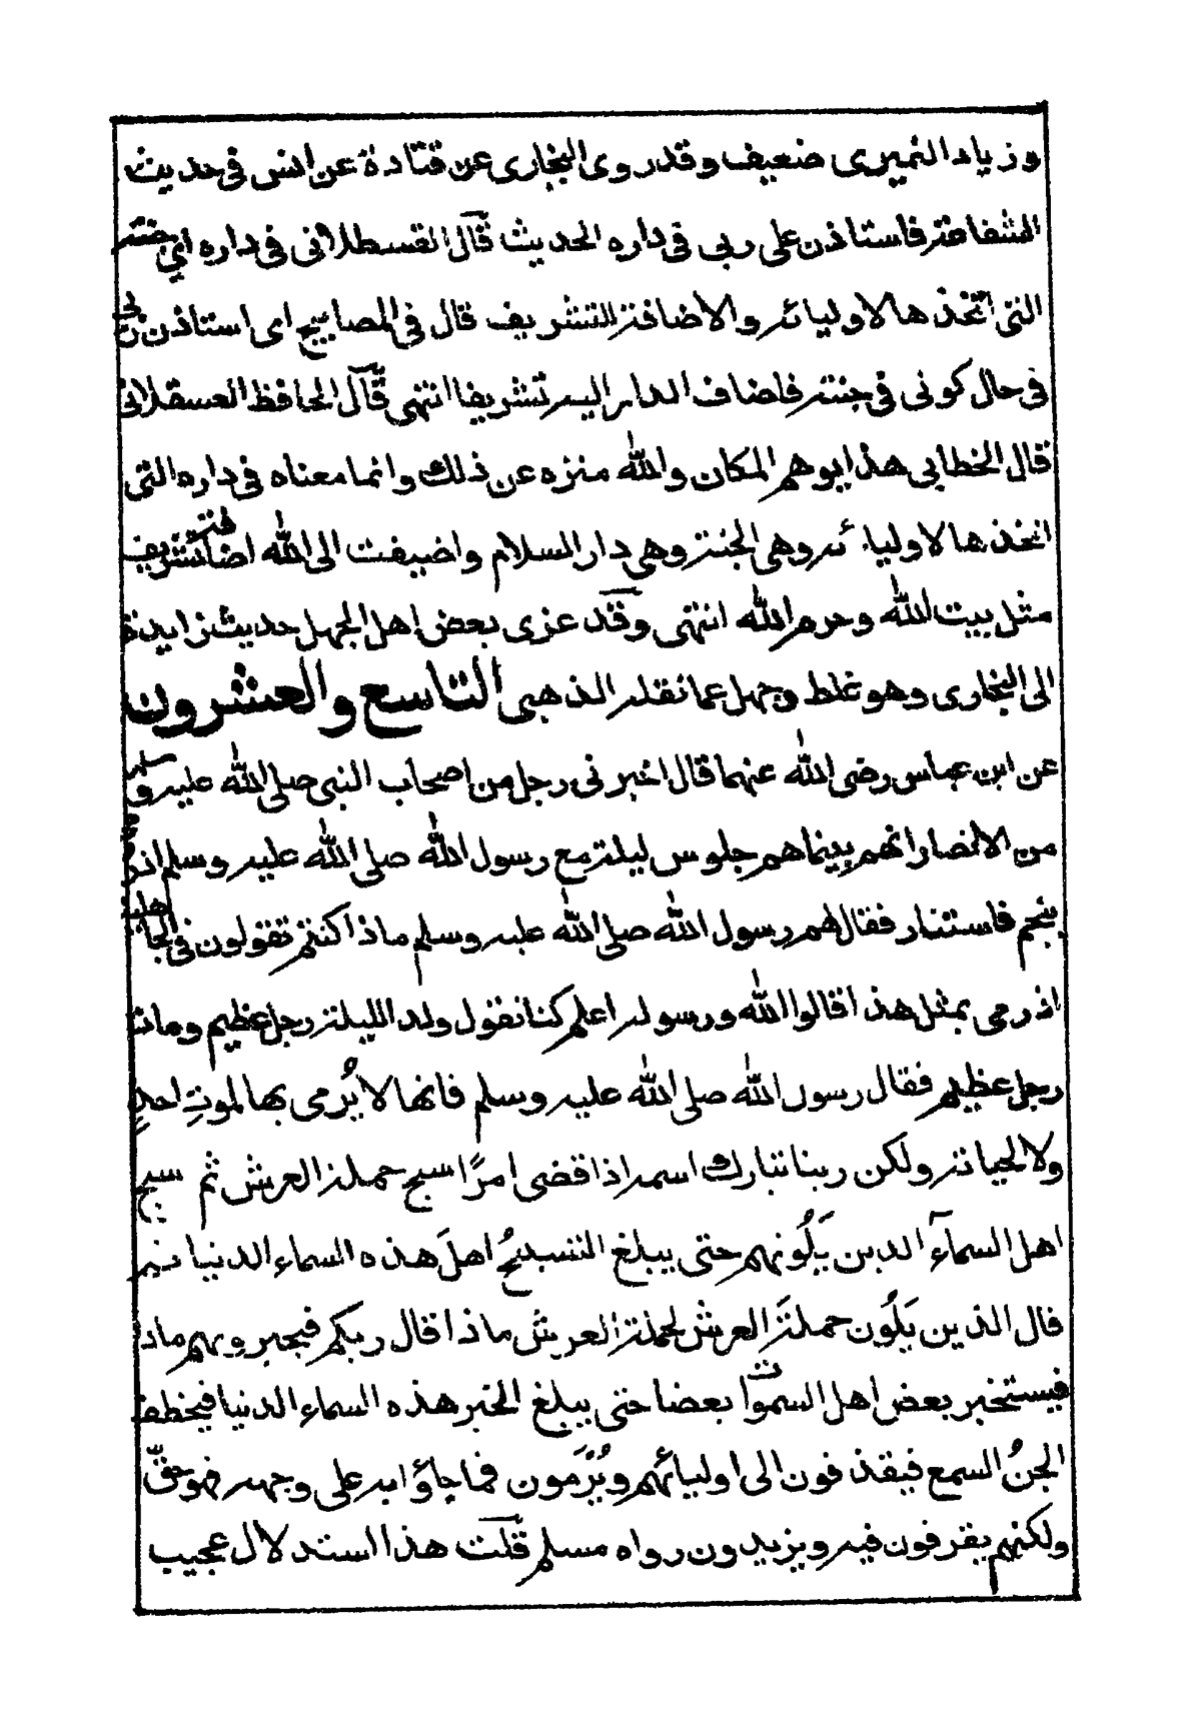 وزياد النميرى ضعيف وقد روى البخارى عن قتادة عن انس فى حديث
الشفاعة فاستاذن على ربى فى داره الحديث قال القسطلانى فى داره اى جنته
التى اتخذها لاوليائه والاضافة للتشريف قال فى المصابيح اى استاذن ربى
فى حال كونى فى جنته فاضاف الدار اليه تشريفا انتهى قال الحافظ العسقلانى
قال الخطابى هذا يوهم المكان والله منزه عن ذلك وانما معناه فى داره التى
اتخذها لاوليائه وهى الجنة وهى دار السلام واضيفت الى الله اضافة تشريف
مثل بيت الله وحرم الله انتهى وقد عزى بعض اهل الجهل حديث زايدة
الى البخارى وهو غلط وجهل عما نقله الذهبى التاسع والعشرون
عن ابن عباس رضى الله عنهما قال اخبرنى رجل من اصحاب النبى صلى الله عليه وسلم
من الانصار انهم بينما هم جلوس ليلة مع رسول الله صلى الله عليه وسلم اذ رمى
بنجم فاستنار فقال لهم رسول الله صلى الله عليه وسلم ماذا كنتم تقولون فى الجاهلية
اذ رمى بمثل هذا قالوا الله ورسوله اعلم كنا نقول ولد الليلة رجل عظيم ومات
رجل عظيم فقال رسول الله صلى الله عليه وسلم فانها لا يُرمى بها لموتِ احدٍ
ولا لحياته ولكن ربنا تبارك اسمه اذا قضى امرًا سبح حملة العرش ثم سبح
اهل السمآء الذين يَلُونهم حتى يبلغ التسبيحُ اهلَ هذه السماء الدنيا ثم
قال الذين يَلُون حملةَ العرش لحملة العرش ماذا قال ربكم فيخبرونهم ماذا
فيستخبر بعض اهل السموات بعضا حتى يبلغ الخبر هذه السماء الدنيا فيخطف
الجنُ السمع فيقذفون الى اوليائهم ويُرمَون فما جاؤا به على وجهه فهو حقّ
ولكنهم يقرفون فيه ويزيدون رواه مسلم قلت هذا استدلال عجيب